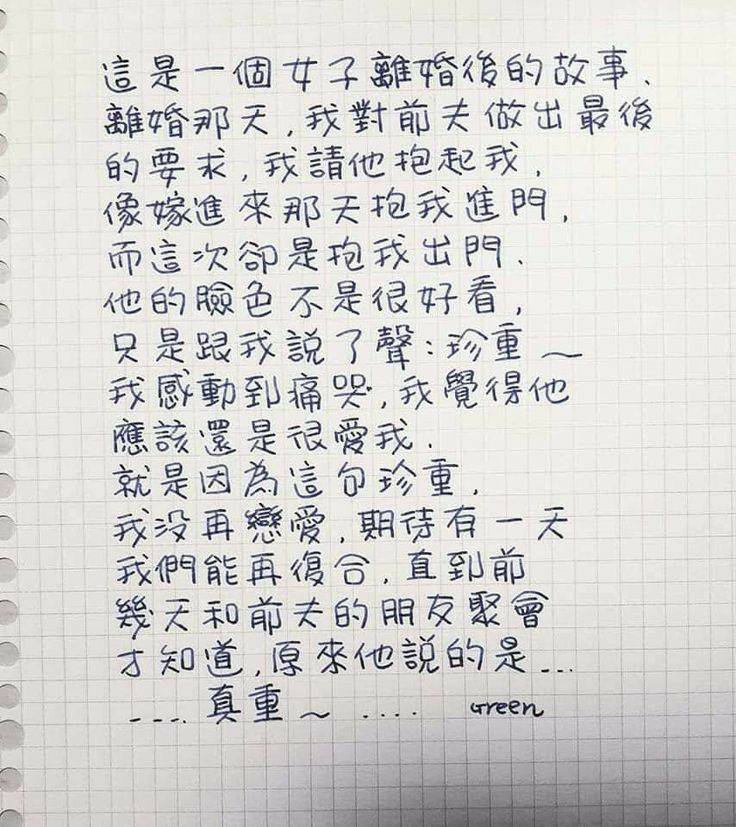 這是一個女子離婚後的故事.
離婚那天,我對前夫做出最後
的要求,我請他抱起我,
像嫁進來那天抱我進門,
而這次卻是抱我出門.
他的臉色不是很好看,
只是跟我說了聲:珍重~
我感動到痛哭,我覺得他
應該還是很愛我.
就是因為這句珍重,
我没再戀愛,期待有一天
我們能再復合,直到前
幾天和前夫的朋友聚會
才知道,原來他說的是...
....真重~ .... Green